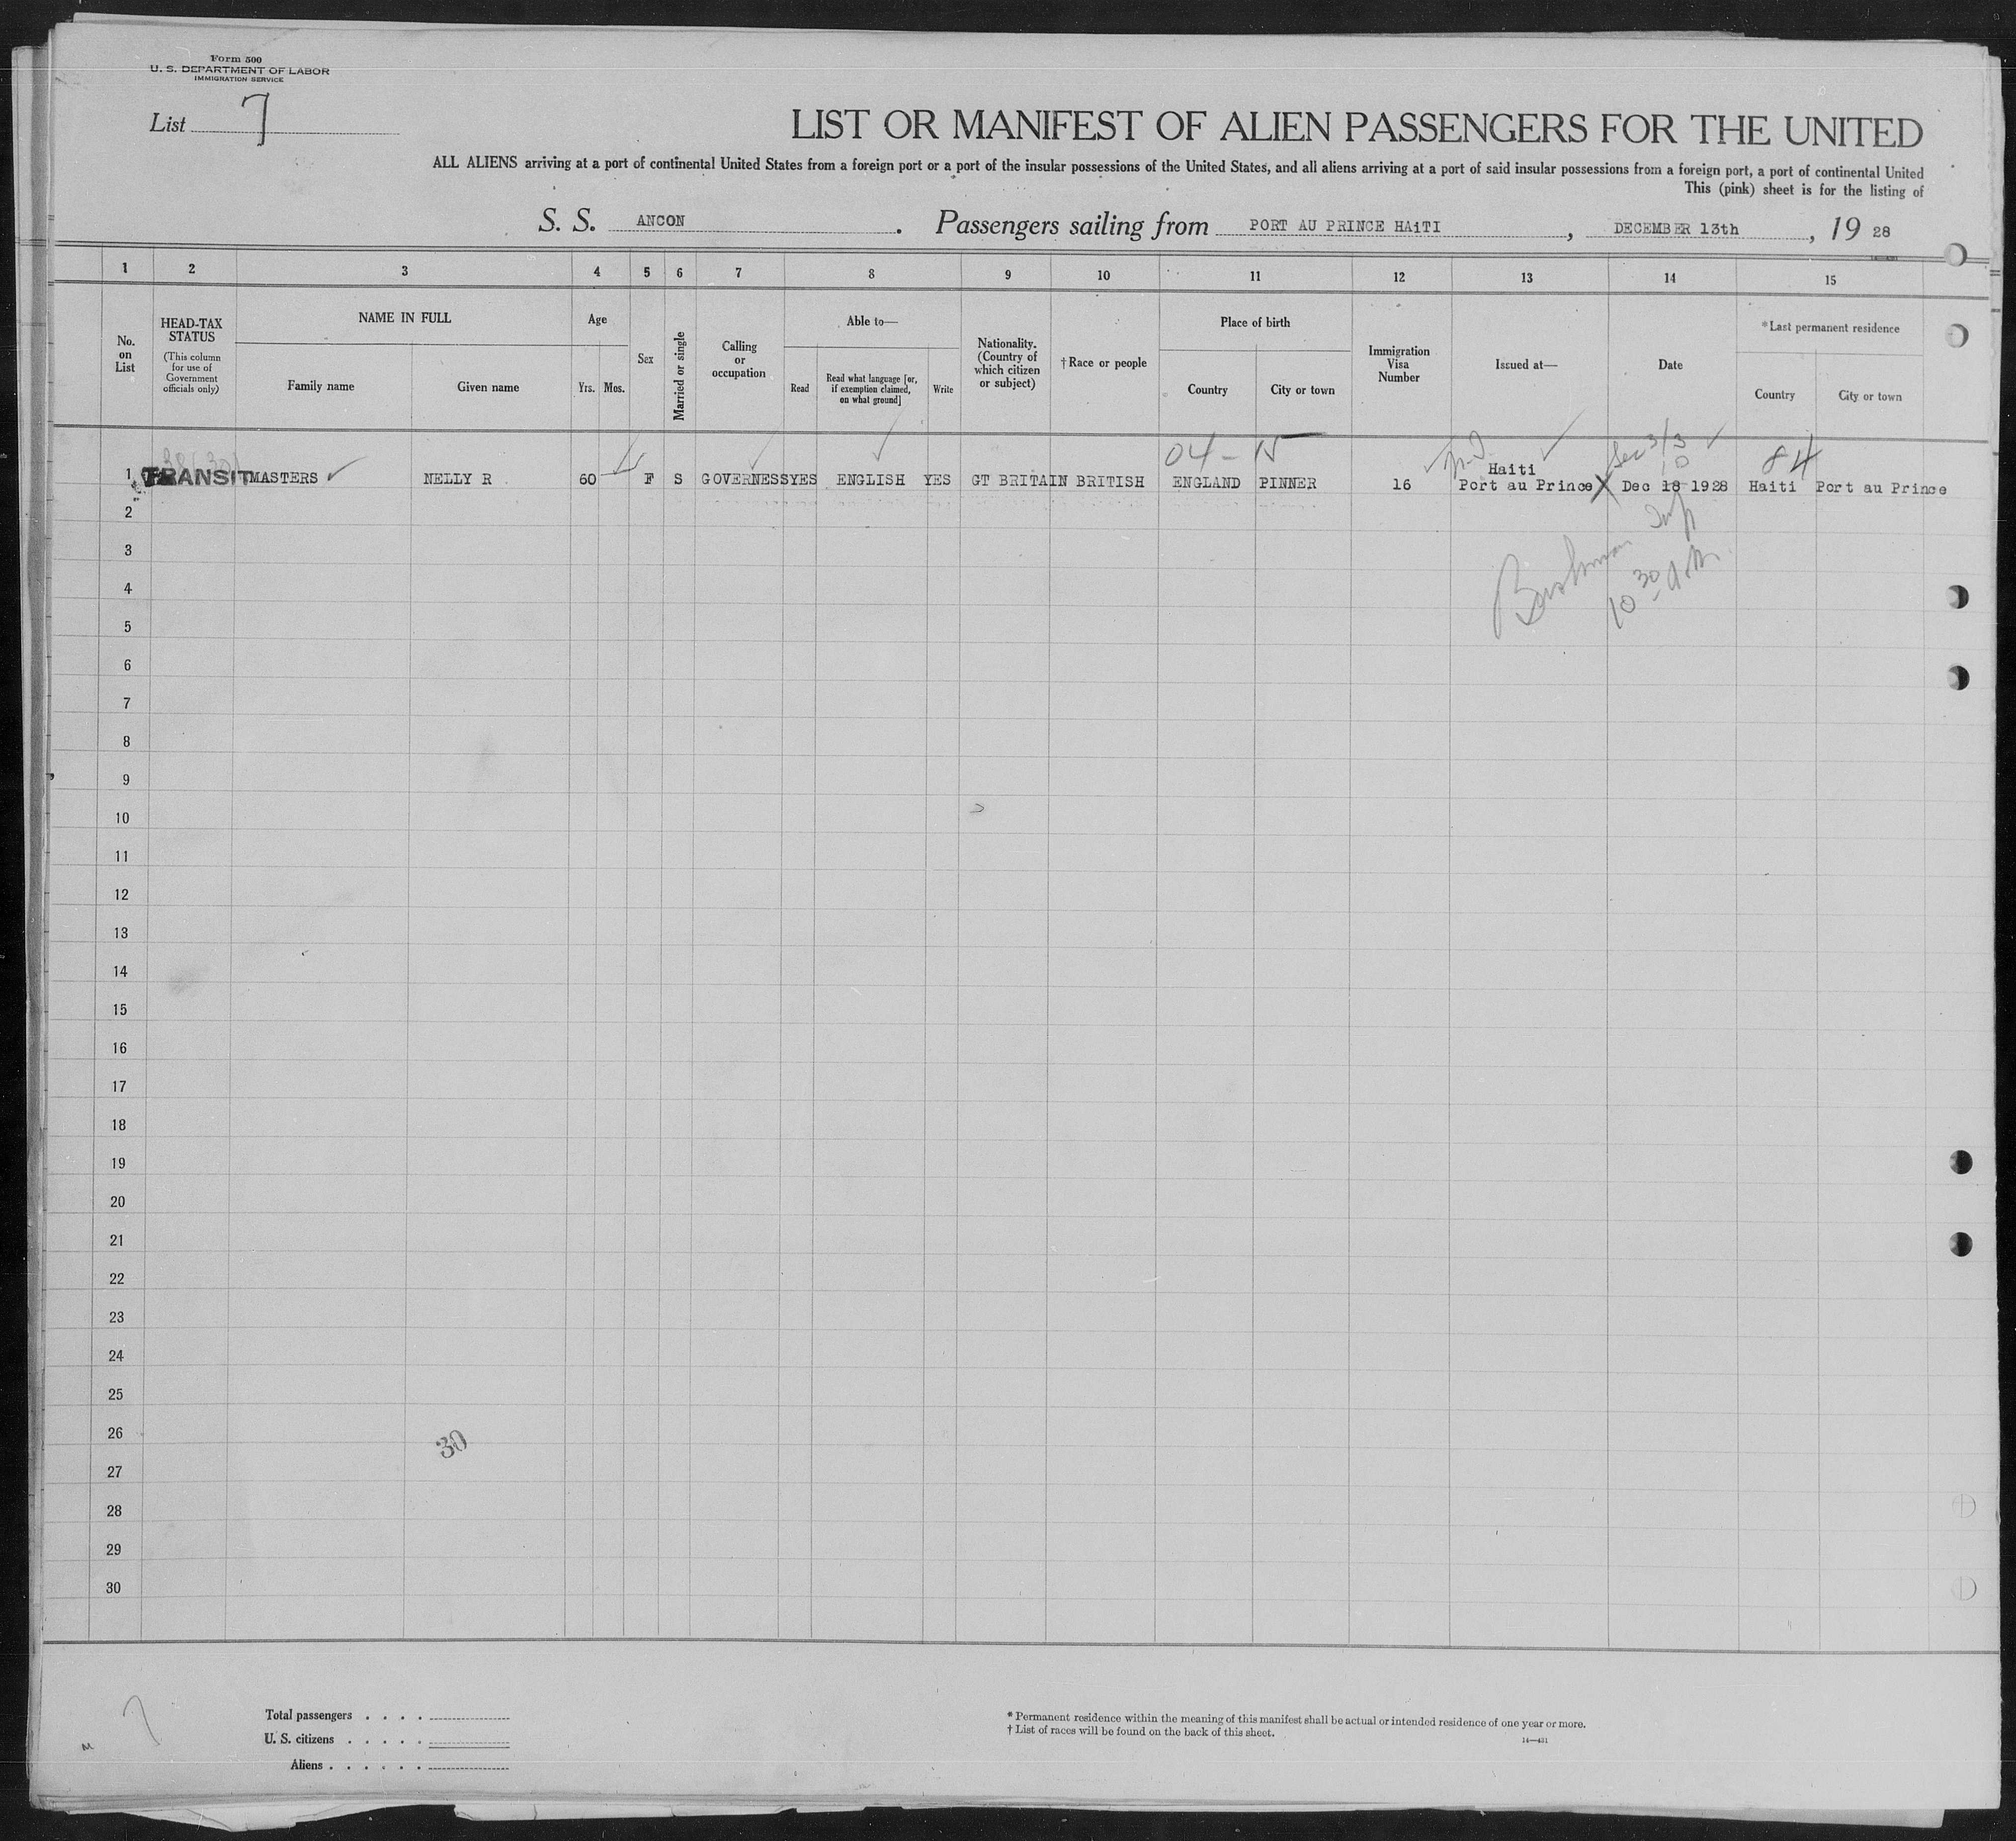 Form 500
U. S. DEPARTMENT OF LABOR
IMMIGRATION SERVICE
List 7
LIST OR MANIFEST OF ALIEN PASSENGERS FOR THE UNITED
ALL ALIENS arriving at a port of continental United States from a foreign port or a port of the insular possessions of the United States, and all aliens arriving at a port of said insular possessions from a foreign port, a port of continental United
This (pink) sheet is for the listing of
S. S. ANCON . Passengers sailing from PORT AU PRINCE HAiTI , DECEMBER 13th , 19 28
1 2 3 4 5 6 7 8 9 10 11 12 13 14 15
No. on List
HEAD-TAX STATUS
(This column for use of Government officials only)
NAME IN FULL
Family name
Given name
Age
Yrs. Mos.
Sex
Married or single
Calling or occupation
Able to—
Read
Read what language [or, if exemption claimed, on what ground]
Write
Nationality. (Country of which citizen or subject)
†Race or people
Place of birth
Country
City or town
Immigration Visa Number
Issued at—
Date
*Last permanent residence
Country
City or town
04 - 15
Dec 3/3
10
84
Haiti
1 TRANSIT MASTERS NELLY R 60 F S GOVERNESS YES ENGLISH YES GT BRITAIN BRITISH ENGLAND PINNER 16 Port au Prince X Dec 18 1928 Haiti Port au Prince
2
3
10 30 A.M.
4
5
6
7
8
9
10
11
12
13
14
15
16
17
18
19
20
21
22
23
24
25
26
30
27
28
29
30
7
Total passengers . . . .
U. S. citizens . . . . .
Aliens . . . . . .
* Permanent residence within the meaning of this manifest shall be actual or intended residence of one year or more.
† List of races will be found on the back of this sheet.
14—431